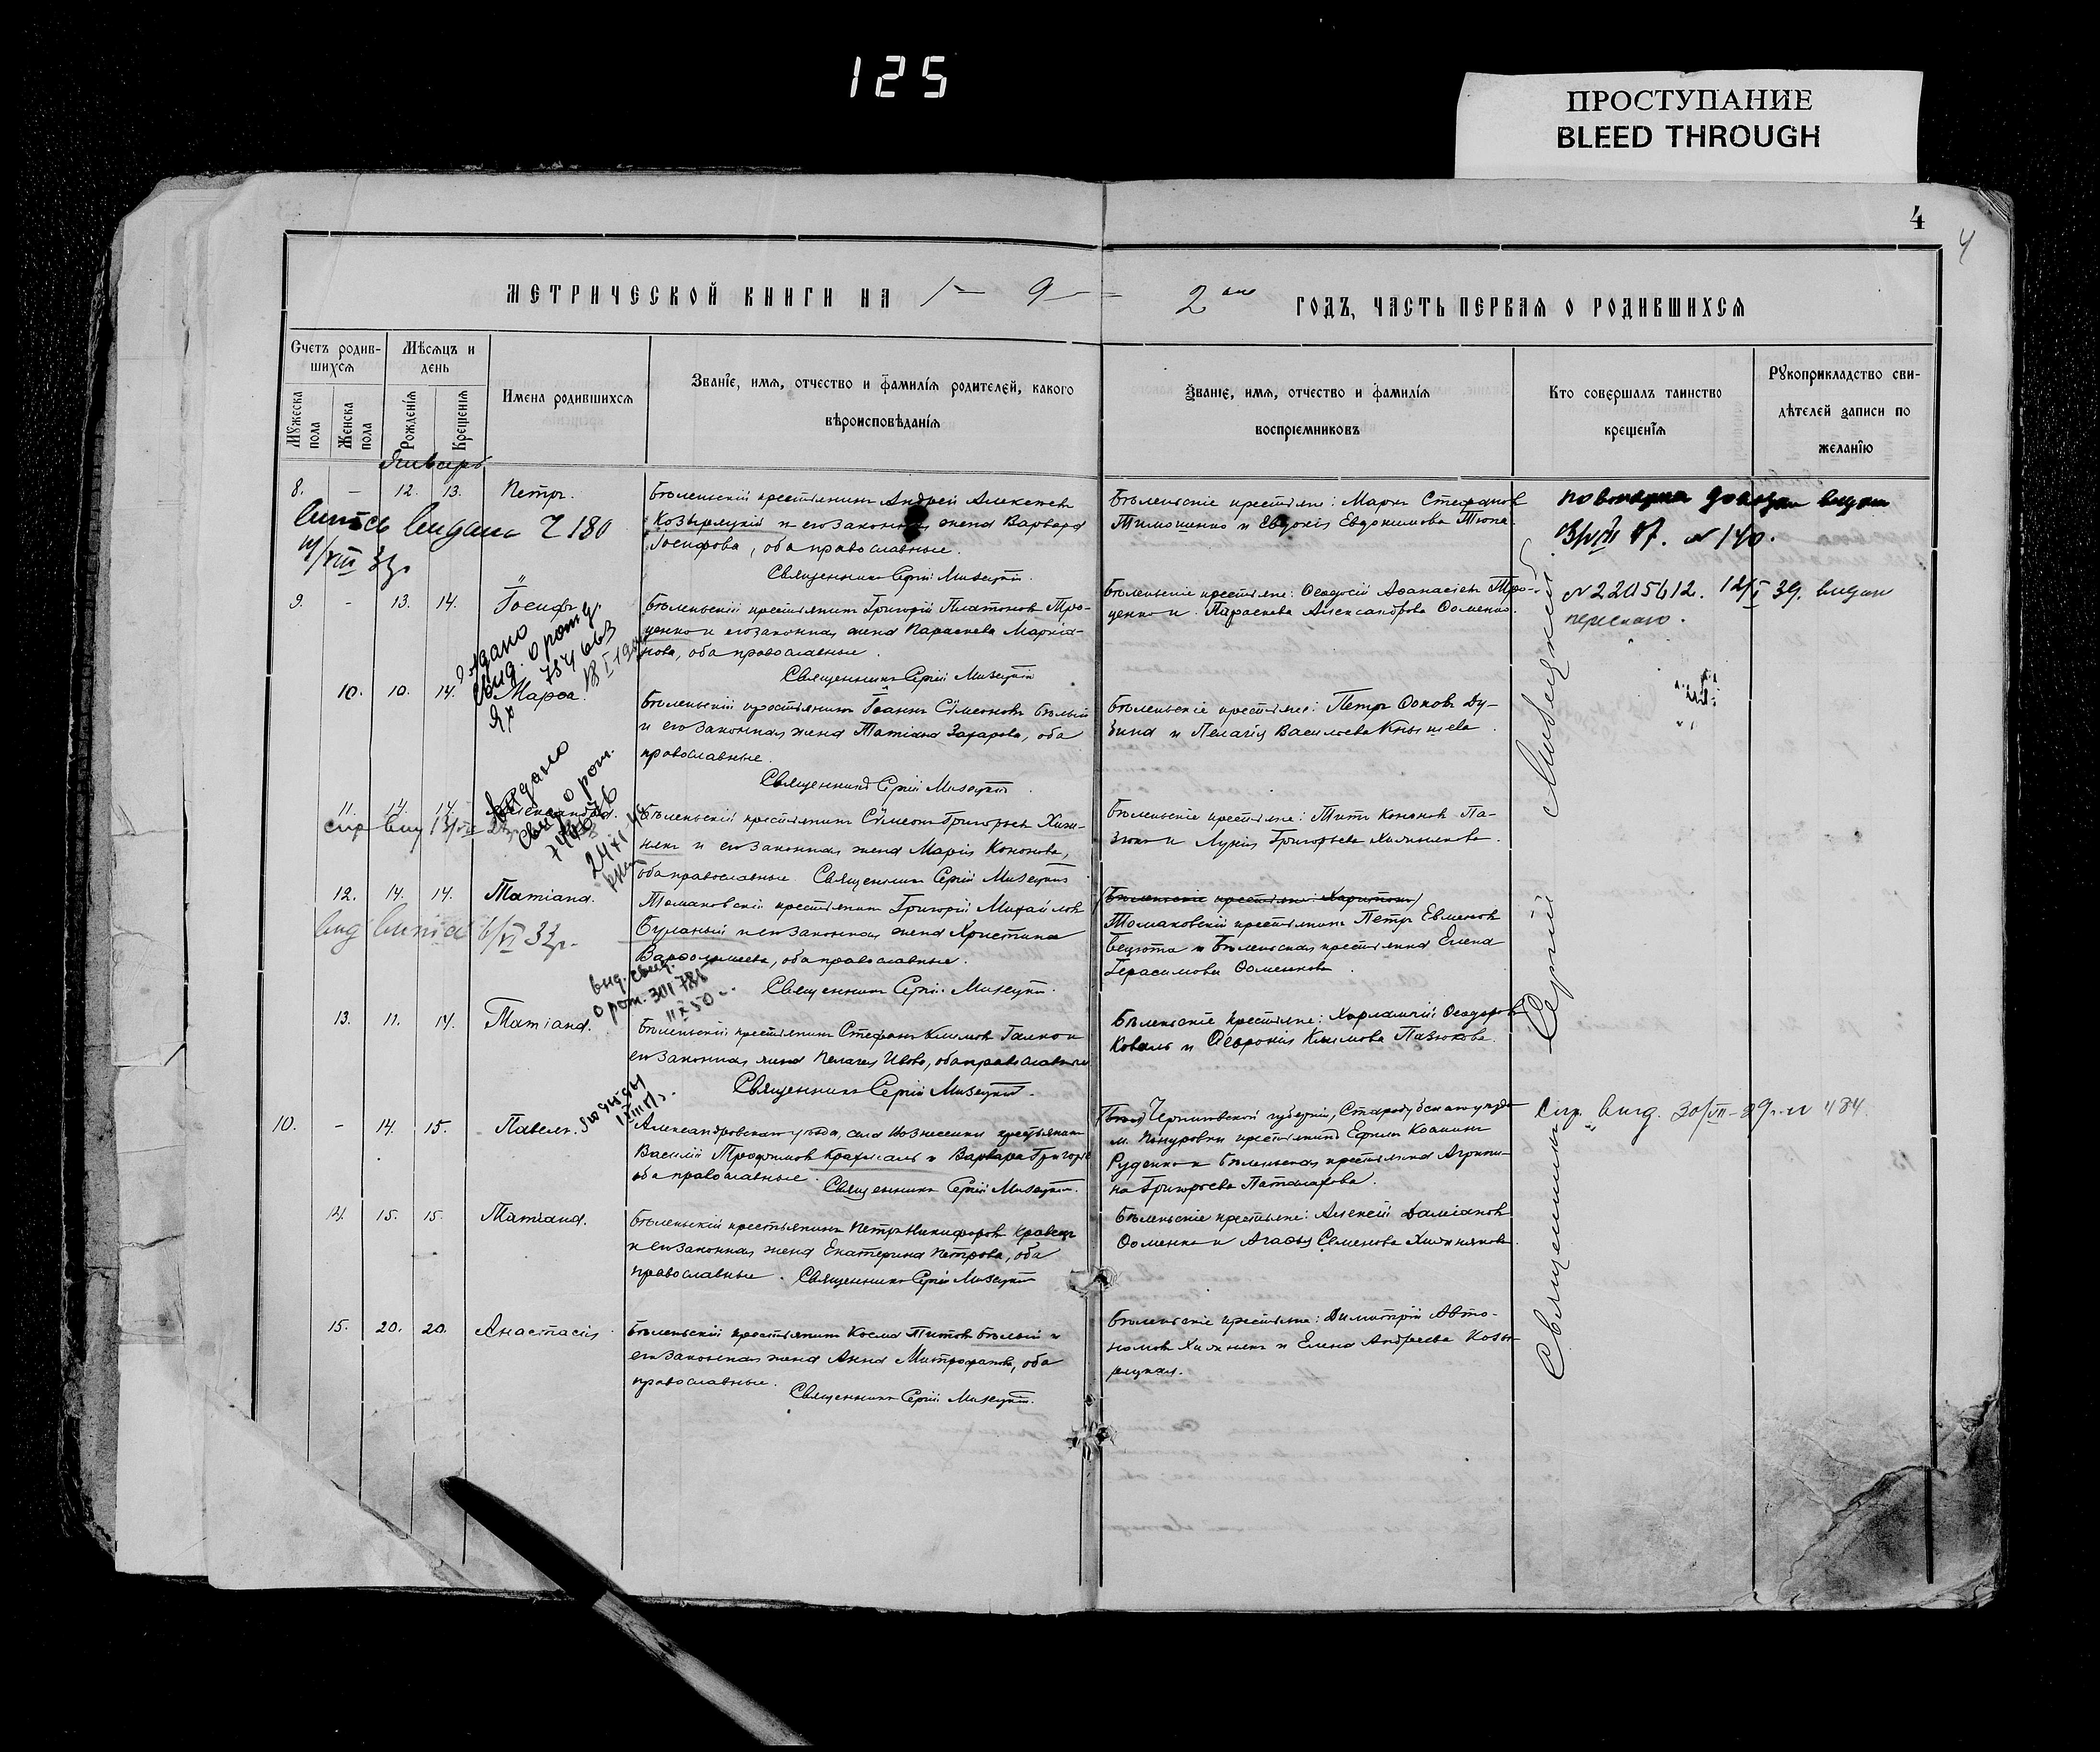 125
ПРОСТУПАНИЕ
BLEED THROUGH
4
4
МЕТРИЧЕСКОЙ КНИГИ НА 1 9 2 ГОДЪ, ЧАСТЬ ПЕРВАЯ О РОДИВШИХСЯ
Счетъ родившихся
Мужеска пола
Женска пола
Мѣсяцъ и день
Рожденія
Крещенія
Имена родившихся
Званіе, имя, отчество и фамилія родителей, какого
вѣроисповѣданія
Званіе, имя, отчество и фамилія
воспріемниковъ
Кто совершалъ таинство
крещенія
Рукоприкладство сви-
дѣтелей записи по
желанію
Январь
8. - 12. 13. Петръ.
Бѣленьскій крестьянинъ Андрей Алексѣевъ
Козырецкій и его законная жена Варвара
Іосифова, оба православные.
Священникъ Сергій Мизецкій.
Бѣленьскіе крестьяне: Маркъ Стефановъ
Тимошенко и Евдокія Евдокимова
выпись выдана 180
№ 140.
9. - 13. 14. Іосифъ.
Бѣленьскій крестьянинъ Григорій Платоновъ Тро-
ценко и его законная жена Параскева Маркіа-
нова, оба православные.
Священникъ Сергій Мизецкій
Бѣленьскіе крестьяне: Ѳеодосій Аѳанасіевъ Тро-
ценко и Параскева Александрова Ѳоменко.
выдано
свид. о рожд.
10. 10. 14. Марѳа.
Бѣленьскій крестьянинъ Іоаннъ Сѵмеоновъ Бѣлый
и его законная жена Татіана Захарова, оба
православные.
Священникъ Сергій Мизецкій
Бѣленьскіе крестьяне: Петръ Ѳоковъ Ду-
бина и Пелагія Васильева Кнышева.
выдано
свид. о рож.
11. 14. 14. Александра.
Бѣленьскій крестьянинъ Сѵмеонъ Григорьевъ Хиж-
някъ и его законная жена Марія Кононова,
оба православные. Священникъ Сергій Мизецкій
Бѣленьскіе крестьяне: Титъ Кононовъ Па-
зюко и Лукія Григорьева Хижнякова.
12. 14. 14. Татіана.
Томаковскій крестьянинъ Григорій Михайловъ
Буланый и его законная жена Христина
Варѳоломеева, оба православные.
Священникъ Сергій Мизецкій.
Бѣленьскіе крестьяне: Харитонъ
Томаковскій крестьянинъ Петръ Евменовъ
и Бѣленьская крестьянка Елена
Герасимова Ѳоменкова.
выд. свид.
о рож. 301788
13. 11. 14. Татіана.
Бѣленьскій крестьянинъ Стефанъ Климовъ Галко и
его законная жена Пелагея Ивова, оба православные
Священникъ Сергій Мизецкій.
Бѣленьскіе крестьяне: Харлампій Ѳеодоровъ
Коваль и Ѳевронія Климова Пазюкова.
10. - 14. 15. Павелъ.
Александровскаго уѣзда, села Вознесенки крестьянинъ
Василій Трофимовъ Крахмаль и Варвара Григор.
оба православные.
Священникъ Сергій Мизецкій.
Черниговской губерніи, Стародубскаго уѣзда
м. Понуровки крестьянинъ Ефимъ Козминъ
Руденко и Бѣленьская крестьянка Агрипи-
на Григорьева Паталахова.
14. 15. 15. Татіана.
Бѣленьскій крестьянинъ Петръ Никифоровъ Кравецъ
и его законная жена Екатерина Петрова, оба
православные. Священникъ Сергій Мизецкій
Бѣленьскіе крестьяне: Алексій Даміановъ
Ѳоменко и Агаѳья Семенова Хижнякова.
15. 20. 20. Анастасія.
Бѣленьскій крестьянинъ Косма Титовъ Бѣлый и
его законная жена Анна Митрофанова, оба
православные.
Священникъ Сергій Мизецкій.
Бѣленьскіе крестьяне: Димитрій Авто-
номовъ Хижнякъ и Елена Андреева Козы-
рецкая.
Священникъ Сергій Мизецкій